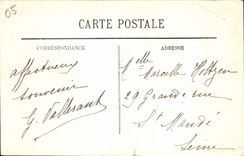 05
CARTE POSTALE
CORRESPONDANCE
ADRESSE
affectueux
souvenir
G. Vallerant
Melle
Marcelle Holtzer
29 Grande rue
St Mandé
Seine